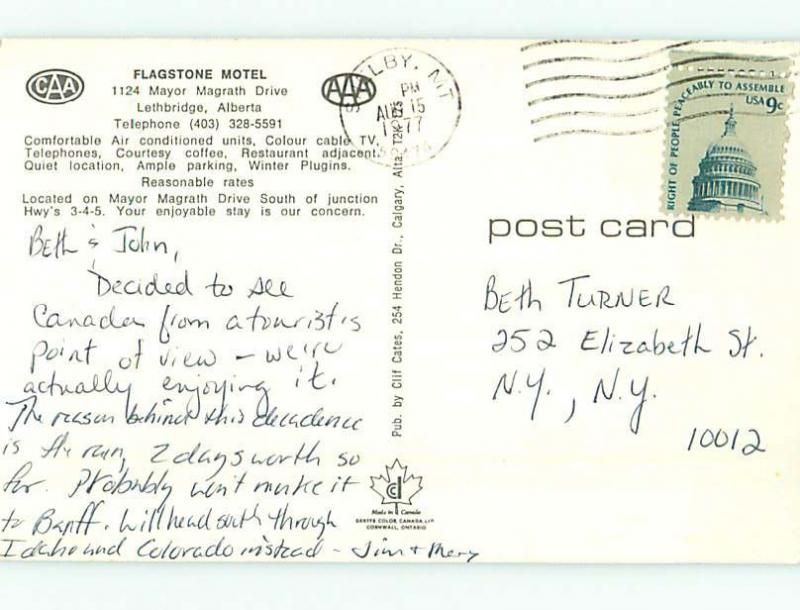 CAA
FLAGSTONE MOTEL
1124 Mayor Magrath Drive
Lethbridge, Alberta
Telephone (403) 328-5591
AAA
Comfortable Air conditioned units, Colour cable TV,
Telephones, Courtesy coffee, Restaurant adjacent.
Quiet location, Ample parking, Winter Plugins.
Reasonable rates
Located on Mayor Magrath Drive South of junction
Hwy's 3-4-5. Your enjoyable stay is our concern.
Beth & John,
Decided to see
Canada from a tourist's
point of view - we're
actually enjoying it.
The reason behind this decadence
is the rain, 2 days worth so
far. Probably won't make it
to Banff. Will head south through
Idaho and Colorado instead - Jim + Mary
Pub. by Clif Cates, 254 Hendon Dr., Calgary, Alta.
LBY, MT
PM
15
1977
RIGHT OF PEOPLE PEACEABLY TO ASSEMBLE
USA 9c
post card
Beth Turner
252 Elizabeth St.
N.Y., N.Y.
10012
Made in Canada
COLOR CANADA LTD
CORNWALL, ONTARIO